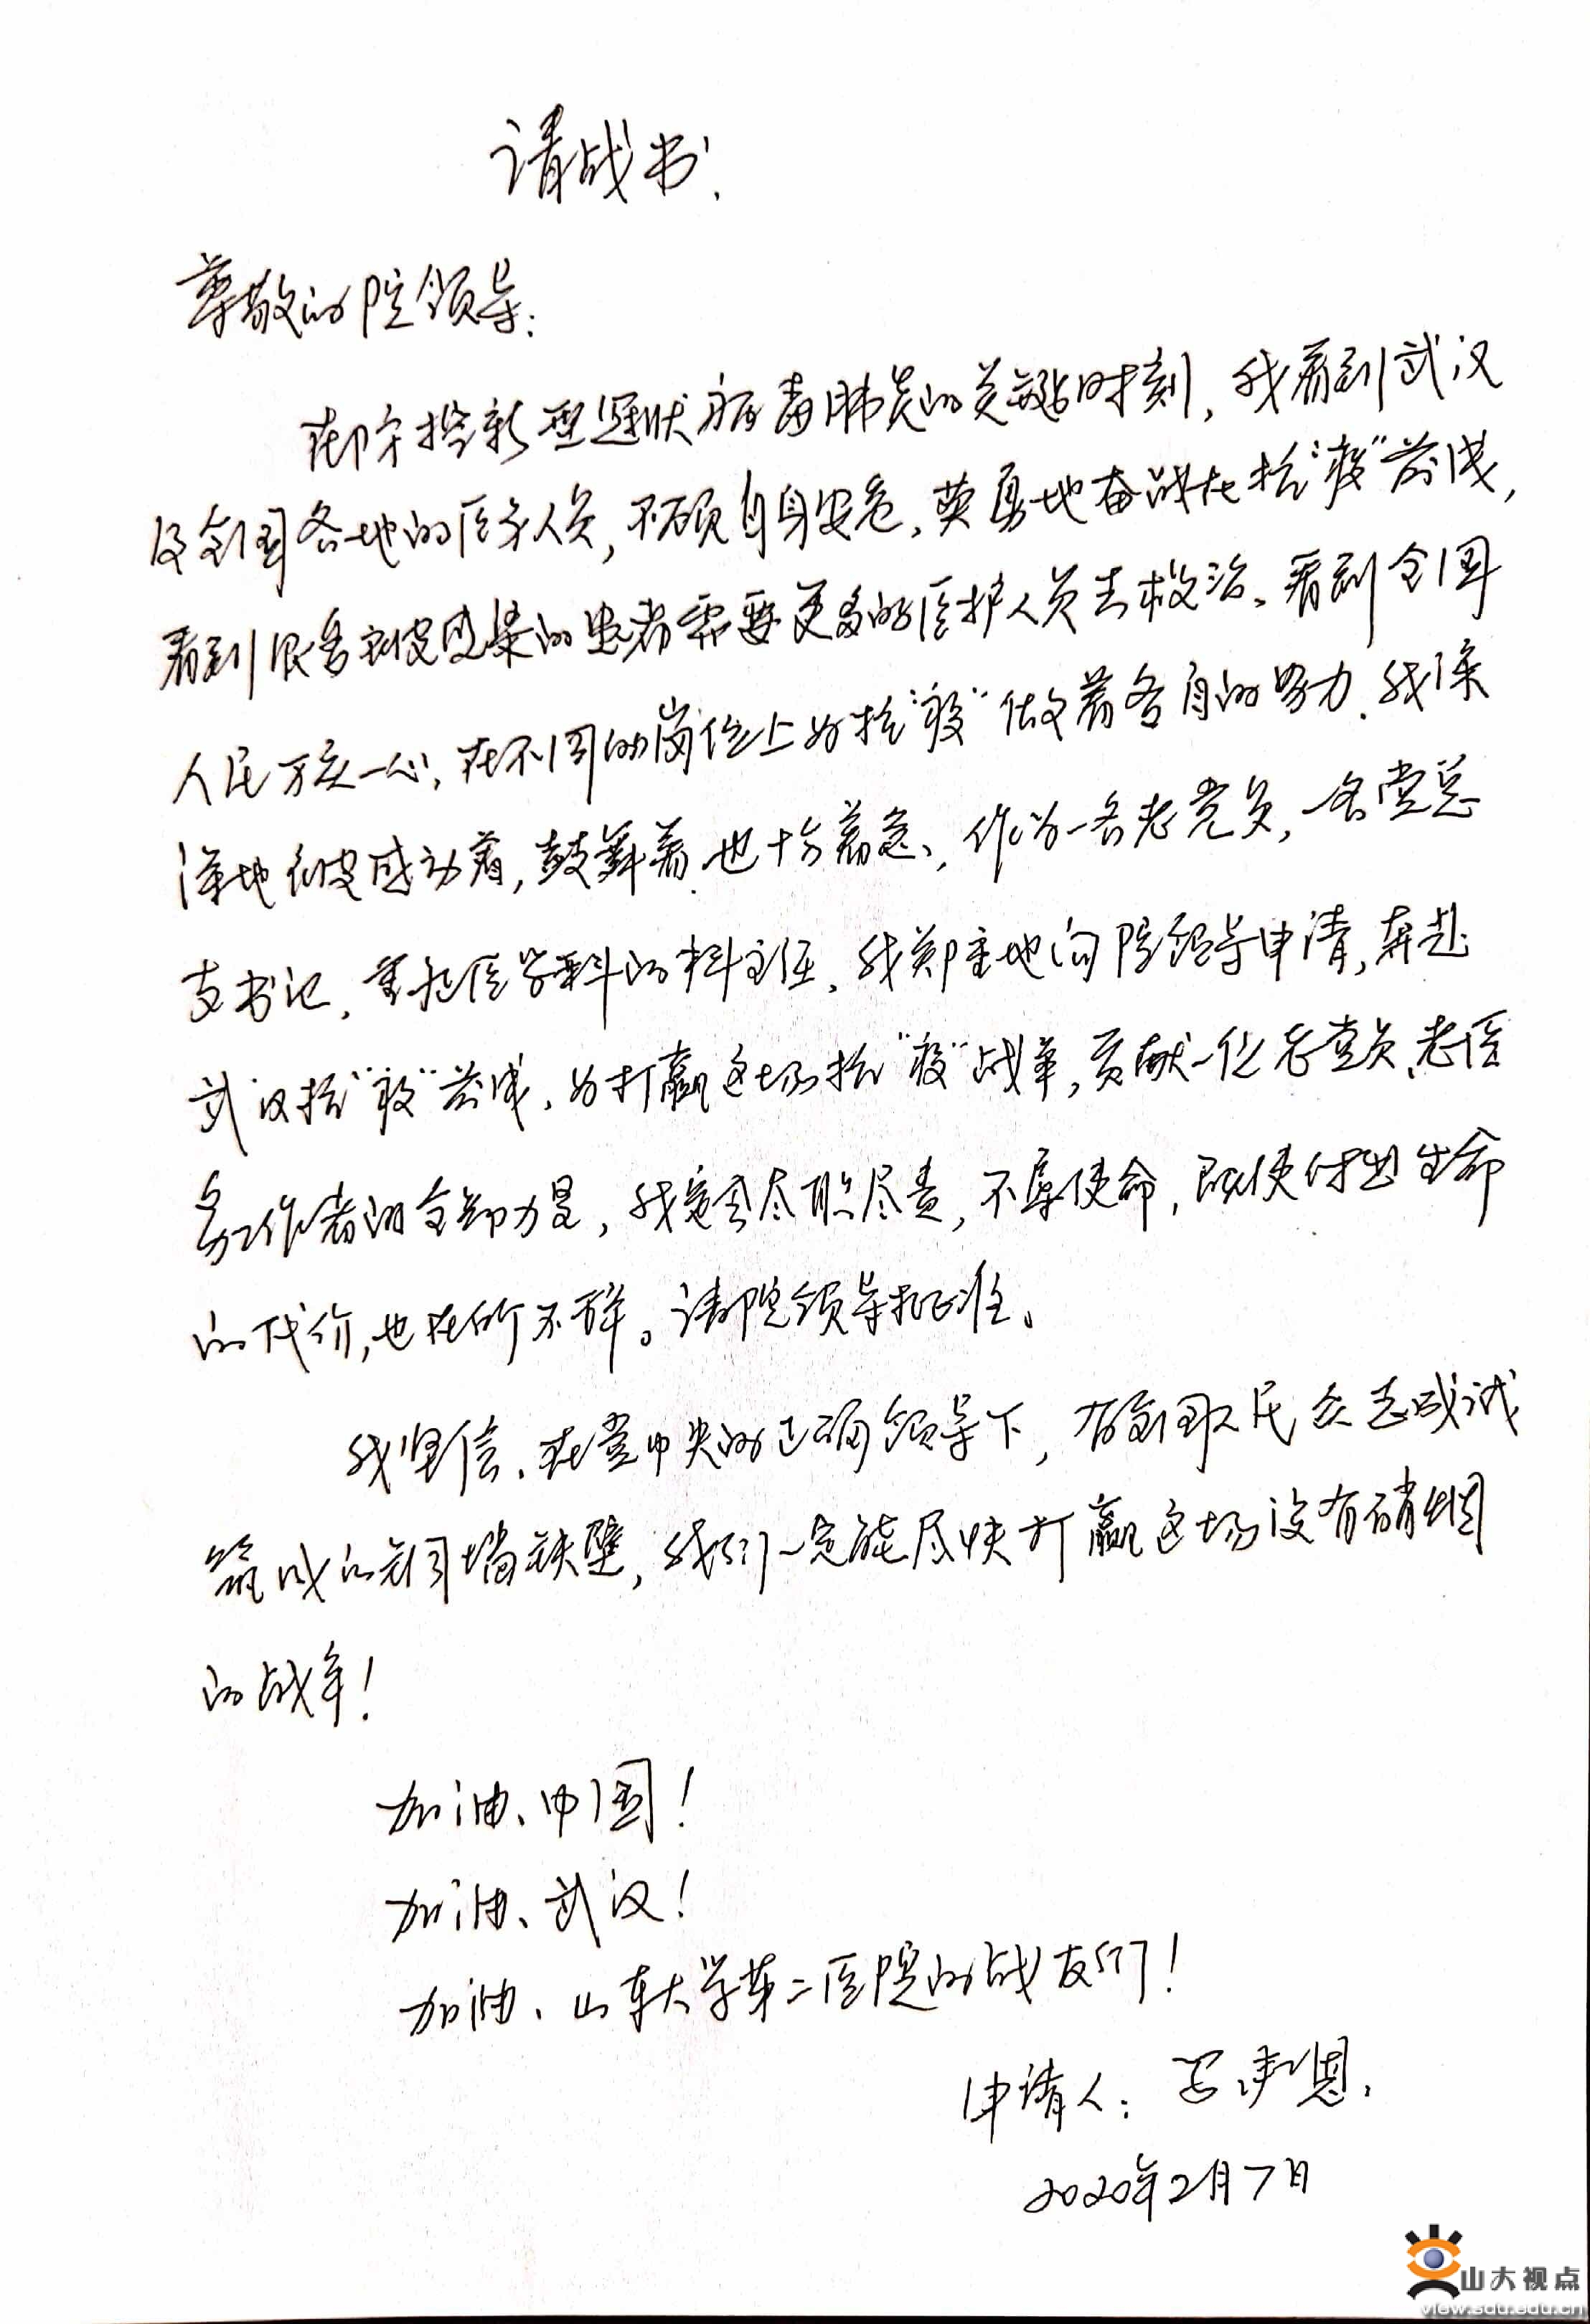 请战书.
尊敬的院领导:
在防控新型冠状病毒肺炎的关键时刻,我看到武汉
及全国各地的医务人员,不顾自身安危,英勇地奋战在抗"疫"前线,
看到很多被感染的患者需要更多的医护人员去救治。看到全国
人民万众一心,在不同的岗位上为抗"疫"做着各自的努力.我深
深地被感动着,鼓舞着.也十分着急、作为一名老党员,一名党总
支书记,重症医学科的科主任,我郑重地向院领导申请,奔赴
武汉抗"疫"前线,为打赢这场抗"疫"战争,贡献一位老党员、老医
务工作者的全部力量,我定会尽职尽责,不辱使命,即使付出生命
的代价,也在所不辞。请院领导批准。
我坚信、在党中央的正确领导下,有全国人民众志成城
筑成的铜墙铁壁,我们一定能尽快打赢这场没有硝烟
的战争!
加油、中国!
加油、武汉!
加油、山东大学第二医院的战友们!
申请人:
2020年2月7日
山大视点
view.sdu.edu.cn